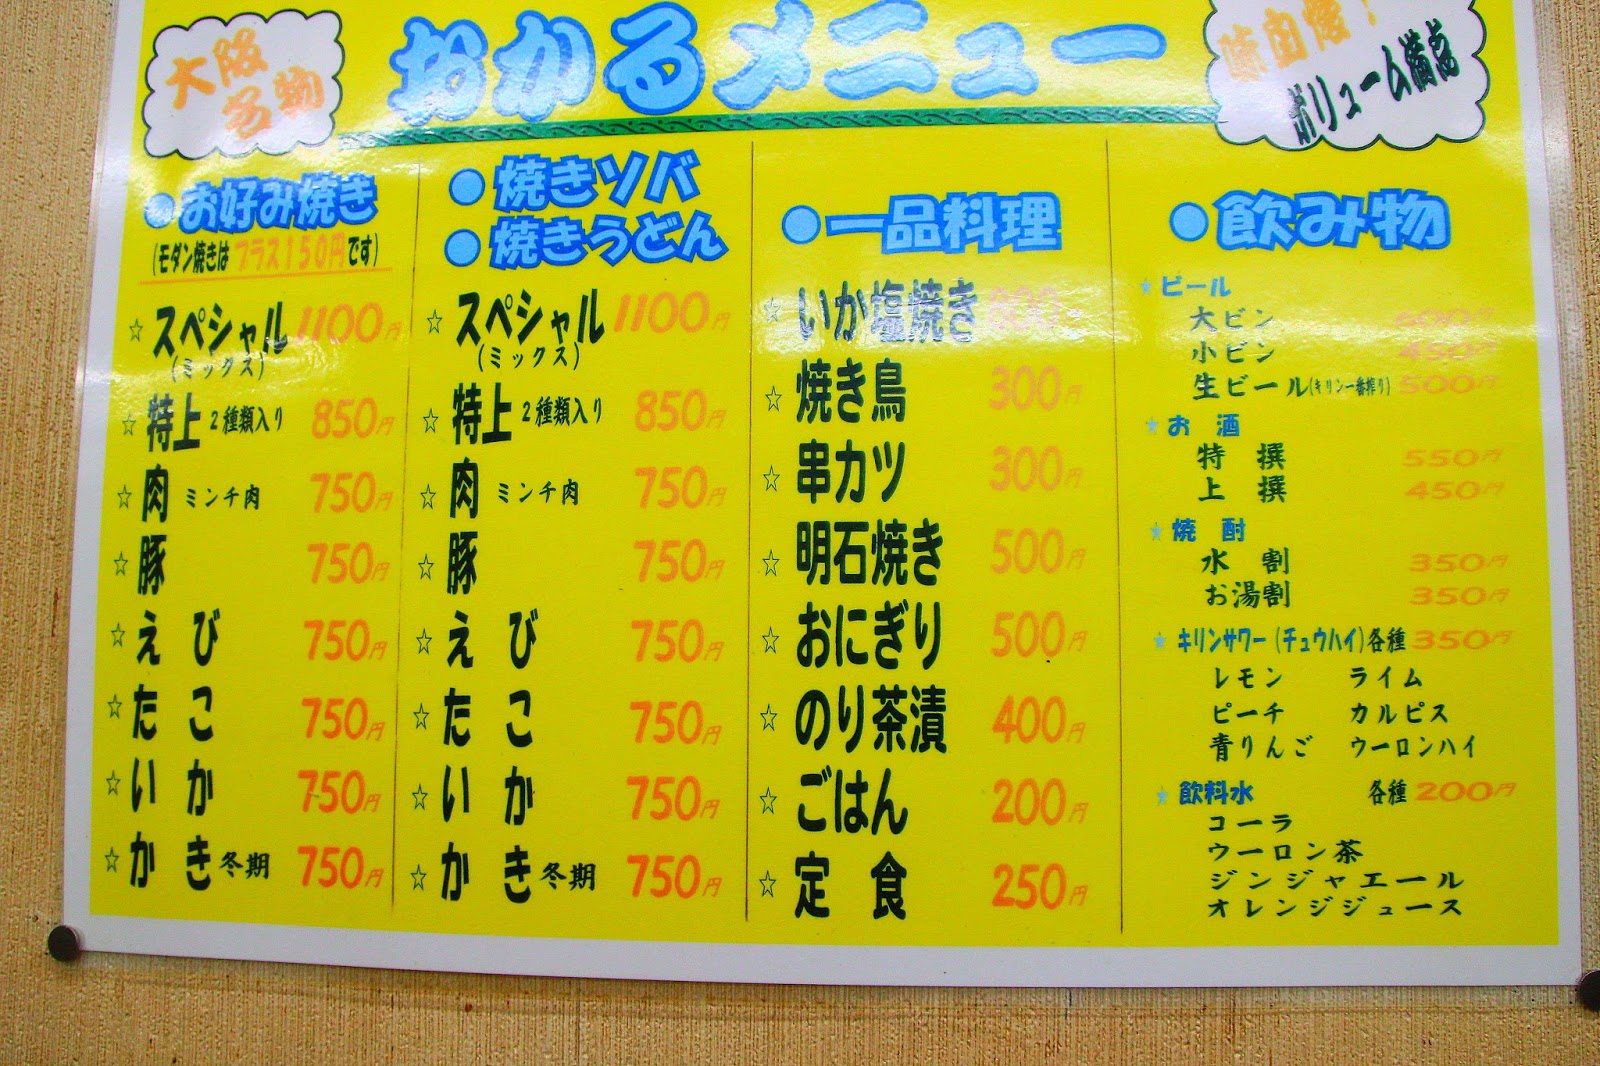 大阪
名物
おかるメニュー
味自慢!
ボリューム満点
●お好み焼き
(モダン焼きはプラス150円です)
☆スペシャル 1100円
(ミックス)
☆特上 2種類入り 850円
☆肉 ミンチ肉 750円
☆豚 750円
☆えび 750円
☆たこ 750円
☆いか 750円
☆かき 冬期 750円
●焼きソバ
●焼きうどん
☆スペシャル 1100円
(ミックス)
☆特上 2種類入り 850円
☆肉 ミンチ肉 750円
☆豚 750円
☆えび 750円
☆たこ 750円
☆いか 750円
☆かき 冬期 750円
●一品料理
☆いか塩焼き 800円
☆焼き鳥 300円
☆串カツ 300円
☆明石焼き 500円
☆おにぎり 500円
☆のり茶漬 400円
☆ごはん 200円
☆定食 250円
●飲み物
★ビール
大ビン 600円
小ビン 450円
生ビール(キリン一番搾り) 500円
★お酒
特撰 550円
上撰 450円
★焼酎
水割 350円
お湯割 350円
★キリンサワー(チュウハイ)各種 350円
レモン ライム
ピーチ カルピス
青りんご ウーロンハイ
★飲料水 各種 200円
コーラ
ウーロン茶
ジンジャエール
オレンジジュース